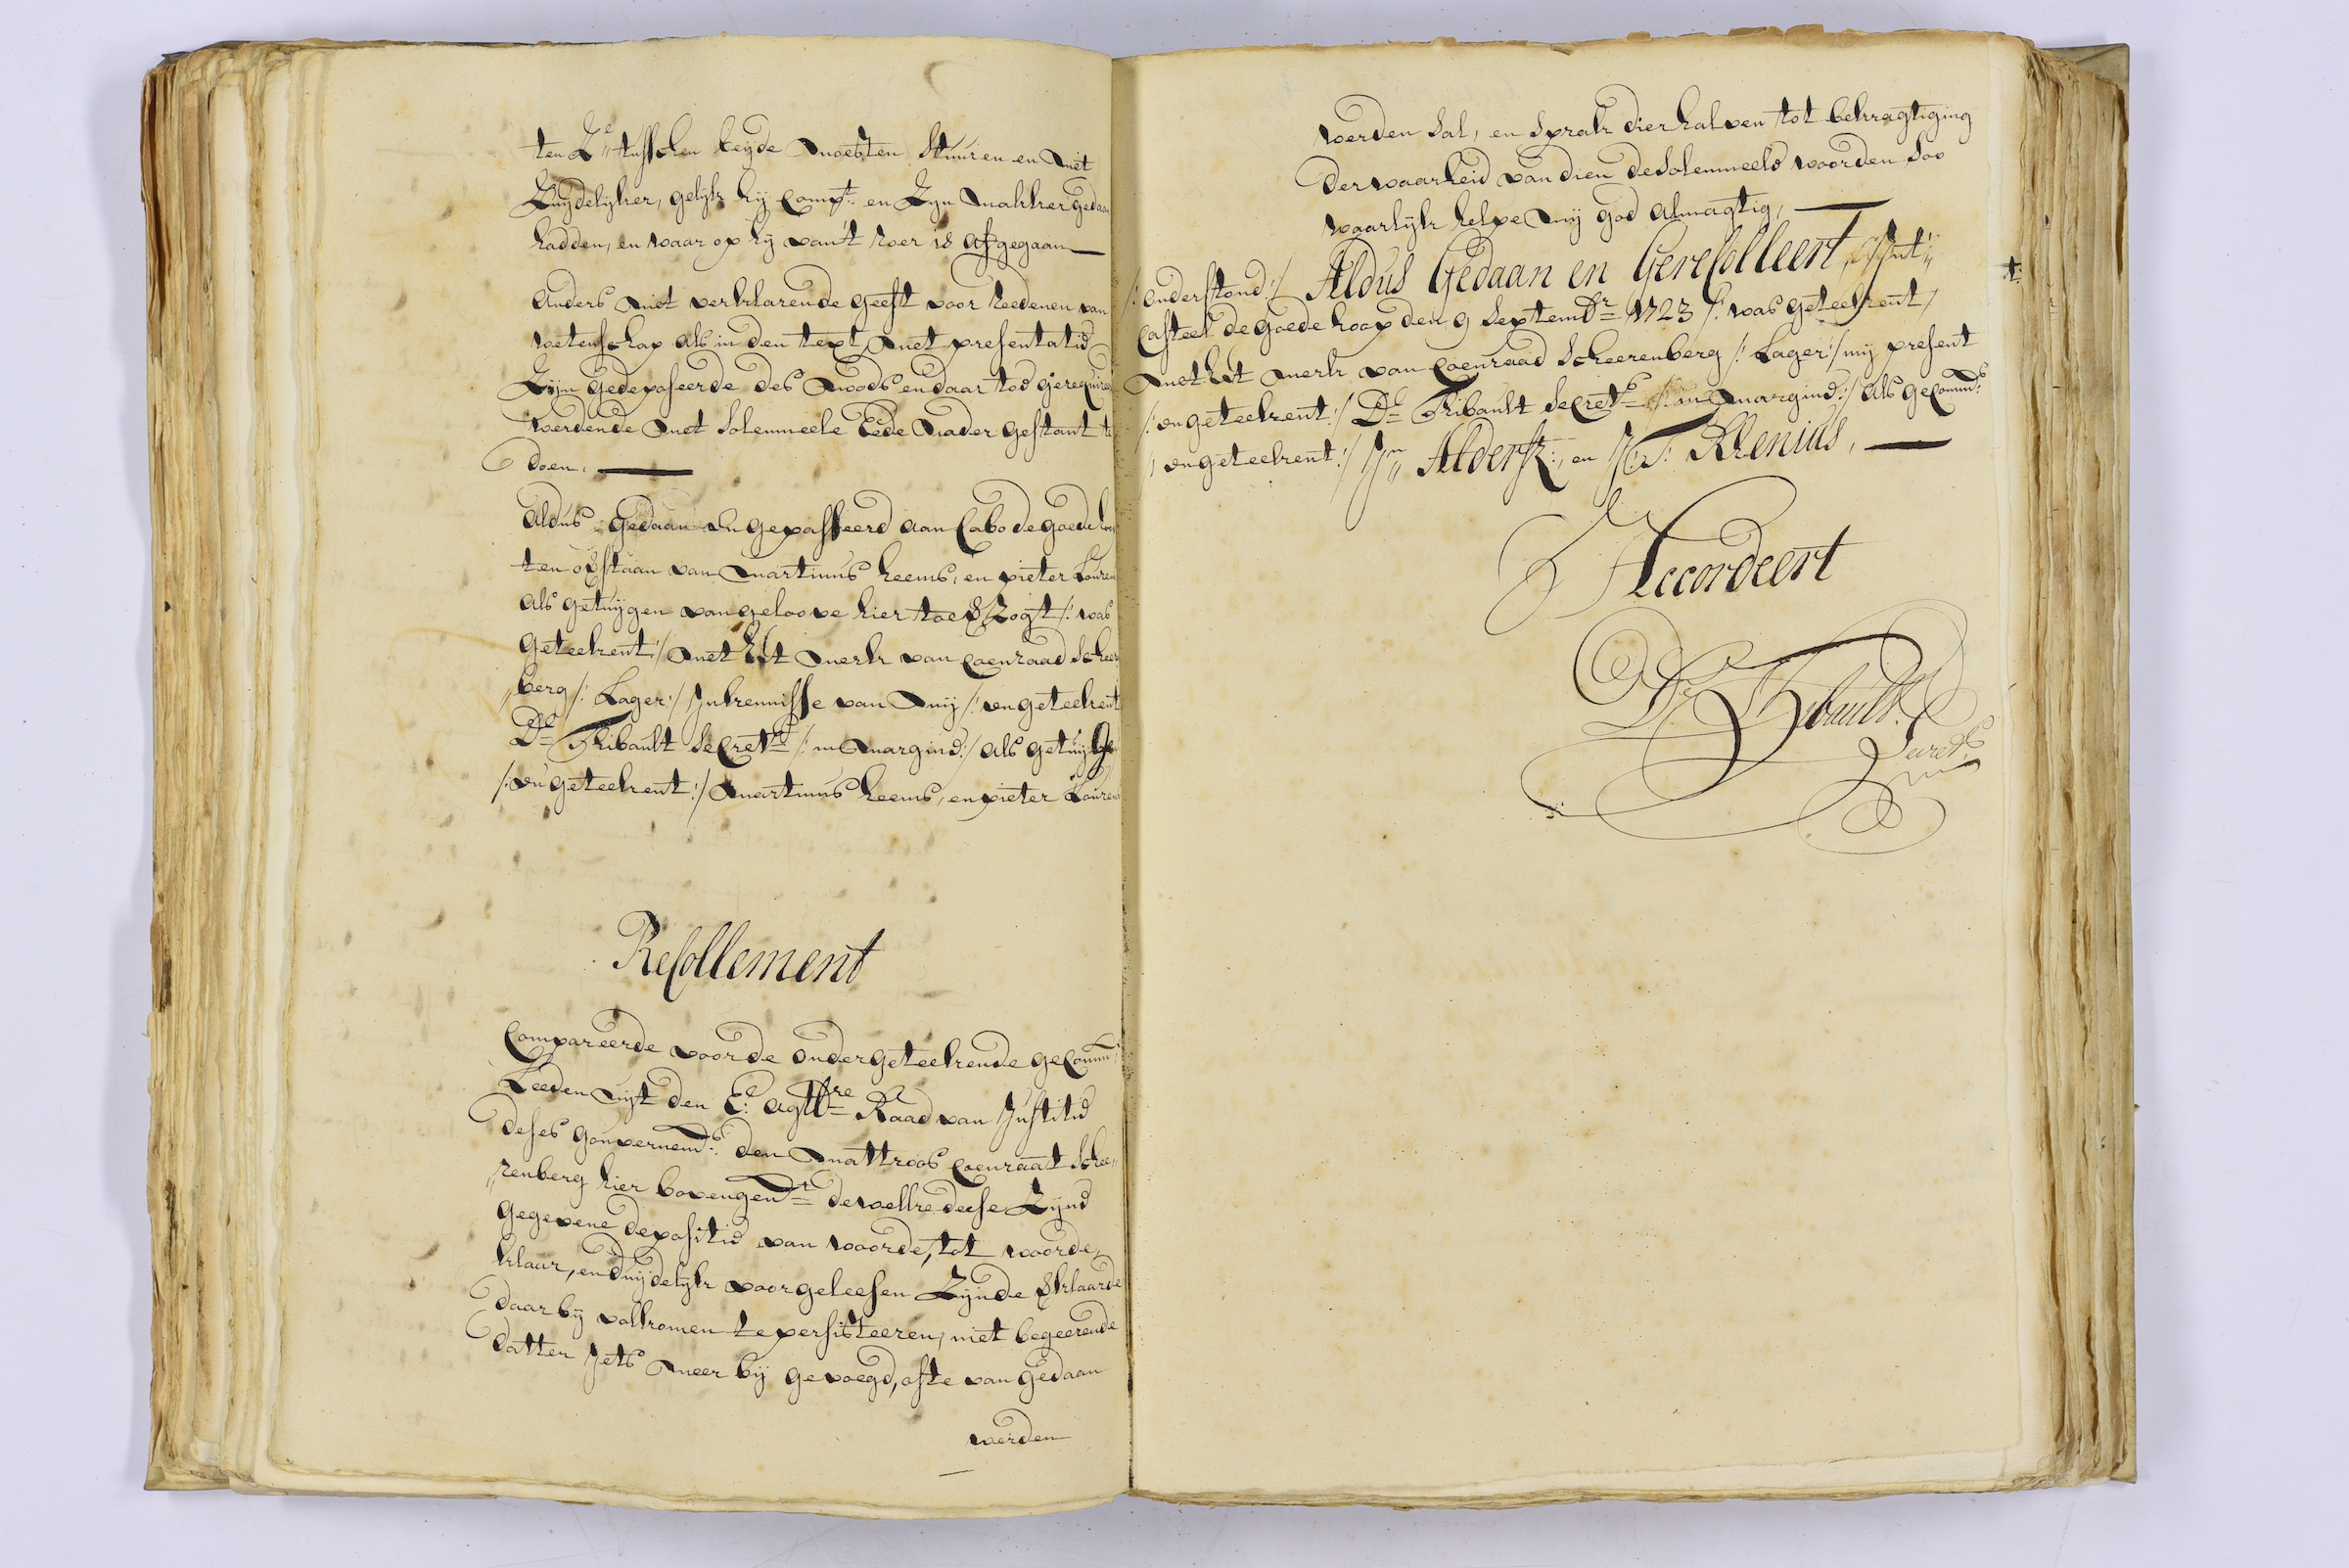 ten Z:e tusschen beyde moesten stuuren en niet
Zuydelyker, gelyk hy Comp:t en Zyn makker gedaan
hadden, en waar op hy van't roer is afgegaan
Anders niet verklarende geeft voor Reedenen van
wetenschap als in den text, met presentatie
Zyn gedeposeerde des noods en daar toe gerequireert
werdende met solemneele Eede nader gestant te
doen,
Aldus Gedaan en gepasseerd aan Cabo de goede hoop
ten overstaan van martinus heems, en pieter Lourens
als getuygen van geloove hier toe verzogt /: was
geteekent :/ met het merk van Coenraad Scheeren
„berg /: Lager :/ In kennisse van my /: en geteekent
D:l Thibault Secret:s /: in margine :/ als getuygen
/: en geteekent :/ martinus heems, en pieter Lourens
Recollement
Compareerde voor de ondergeteekende gecomm:s
Leeden uyt den E: agtb:re Raad van Justitie
deses gouvernem:s den mattroos Coenraat Schee„
„renberg hier bovengen:t dewelke deese Zyne
gegevene depositie van woorde, tot woorde,
klaar, en duydelyk voorgeleesen Zynde verklaarde
daar by volkomen te persisteeren, niet begeerende
datter iets meer by gevoegd, ofte van gedaan
werden
werden sal, en sprak dierhalven tot bekragtiging
der waarheid van dien de solemneele woorden Soo
waarlyk helpe my god almagtig,
/: onderstond :/ Aldus Gedaan en Gerecolleert, in't
Casteel de goede hoop den 9 Septemb:r 1723 /: was geteekent /
met het merk van Coenraad Scheerenberg /: Lager :/ my present
/: en geteekent :/ D:l Thibault Secret:s /: in margine :/ als gecomm:s
/ en geteekent :/ J:n Aldersz:, en H:T: Rhenius,
Accordeert
D:l Thibault.
Secret:s